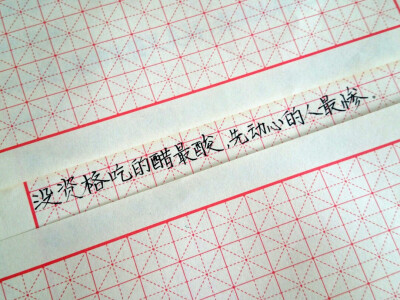 没资格吃的醋最酸,先动心的人最惨.